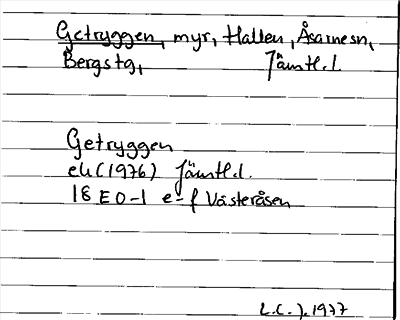 Getryggen, myr, Hallen, Åsarnesn,
Bergstg, Jämtl.l.
Getryggen
ek (1976) Jämtl.l.
18 E 0-1 e-f Västeråsen
L.C.J. 1977